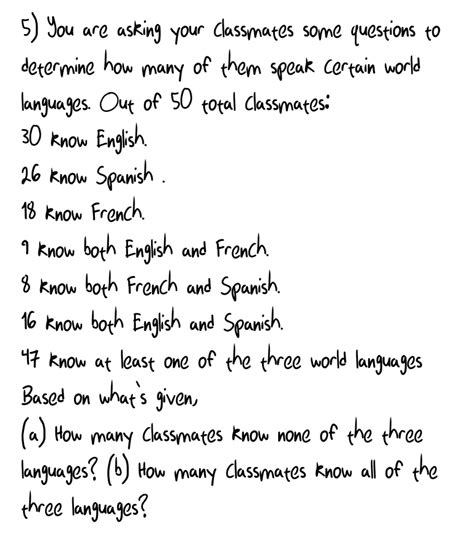 5) You are asking your classmates some questions to
determine how many of them speak certain world
languages. Out of 50 total classmates:
30 know English.
26 know Spanish.
18 know French.
9 know both English and French.
8 know both French and Spanish.
16 know both English and Spanish.
47 know at least one of the three world languages
Based on what's given,
(a) How many classmates know none of the three
languages? (b) How many classmates know all of the
three languages?